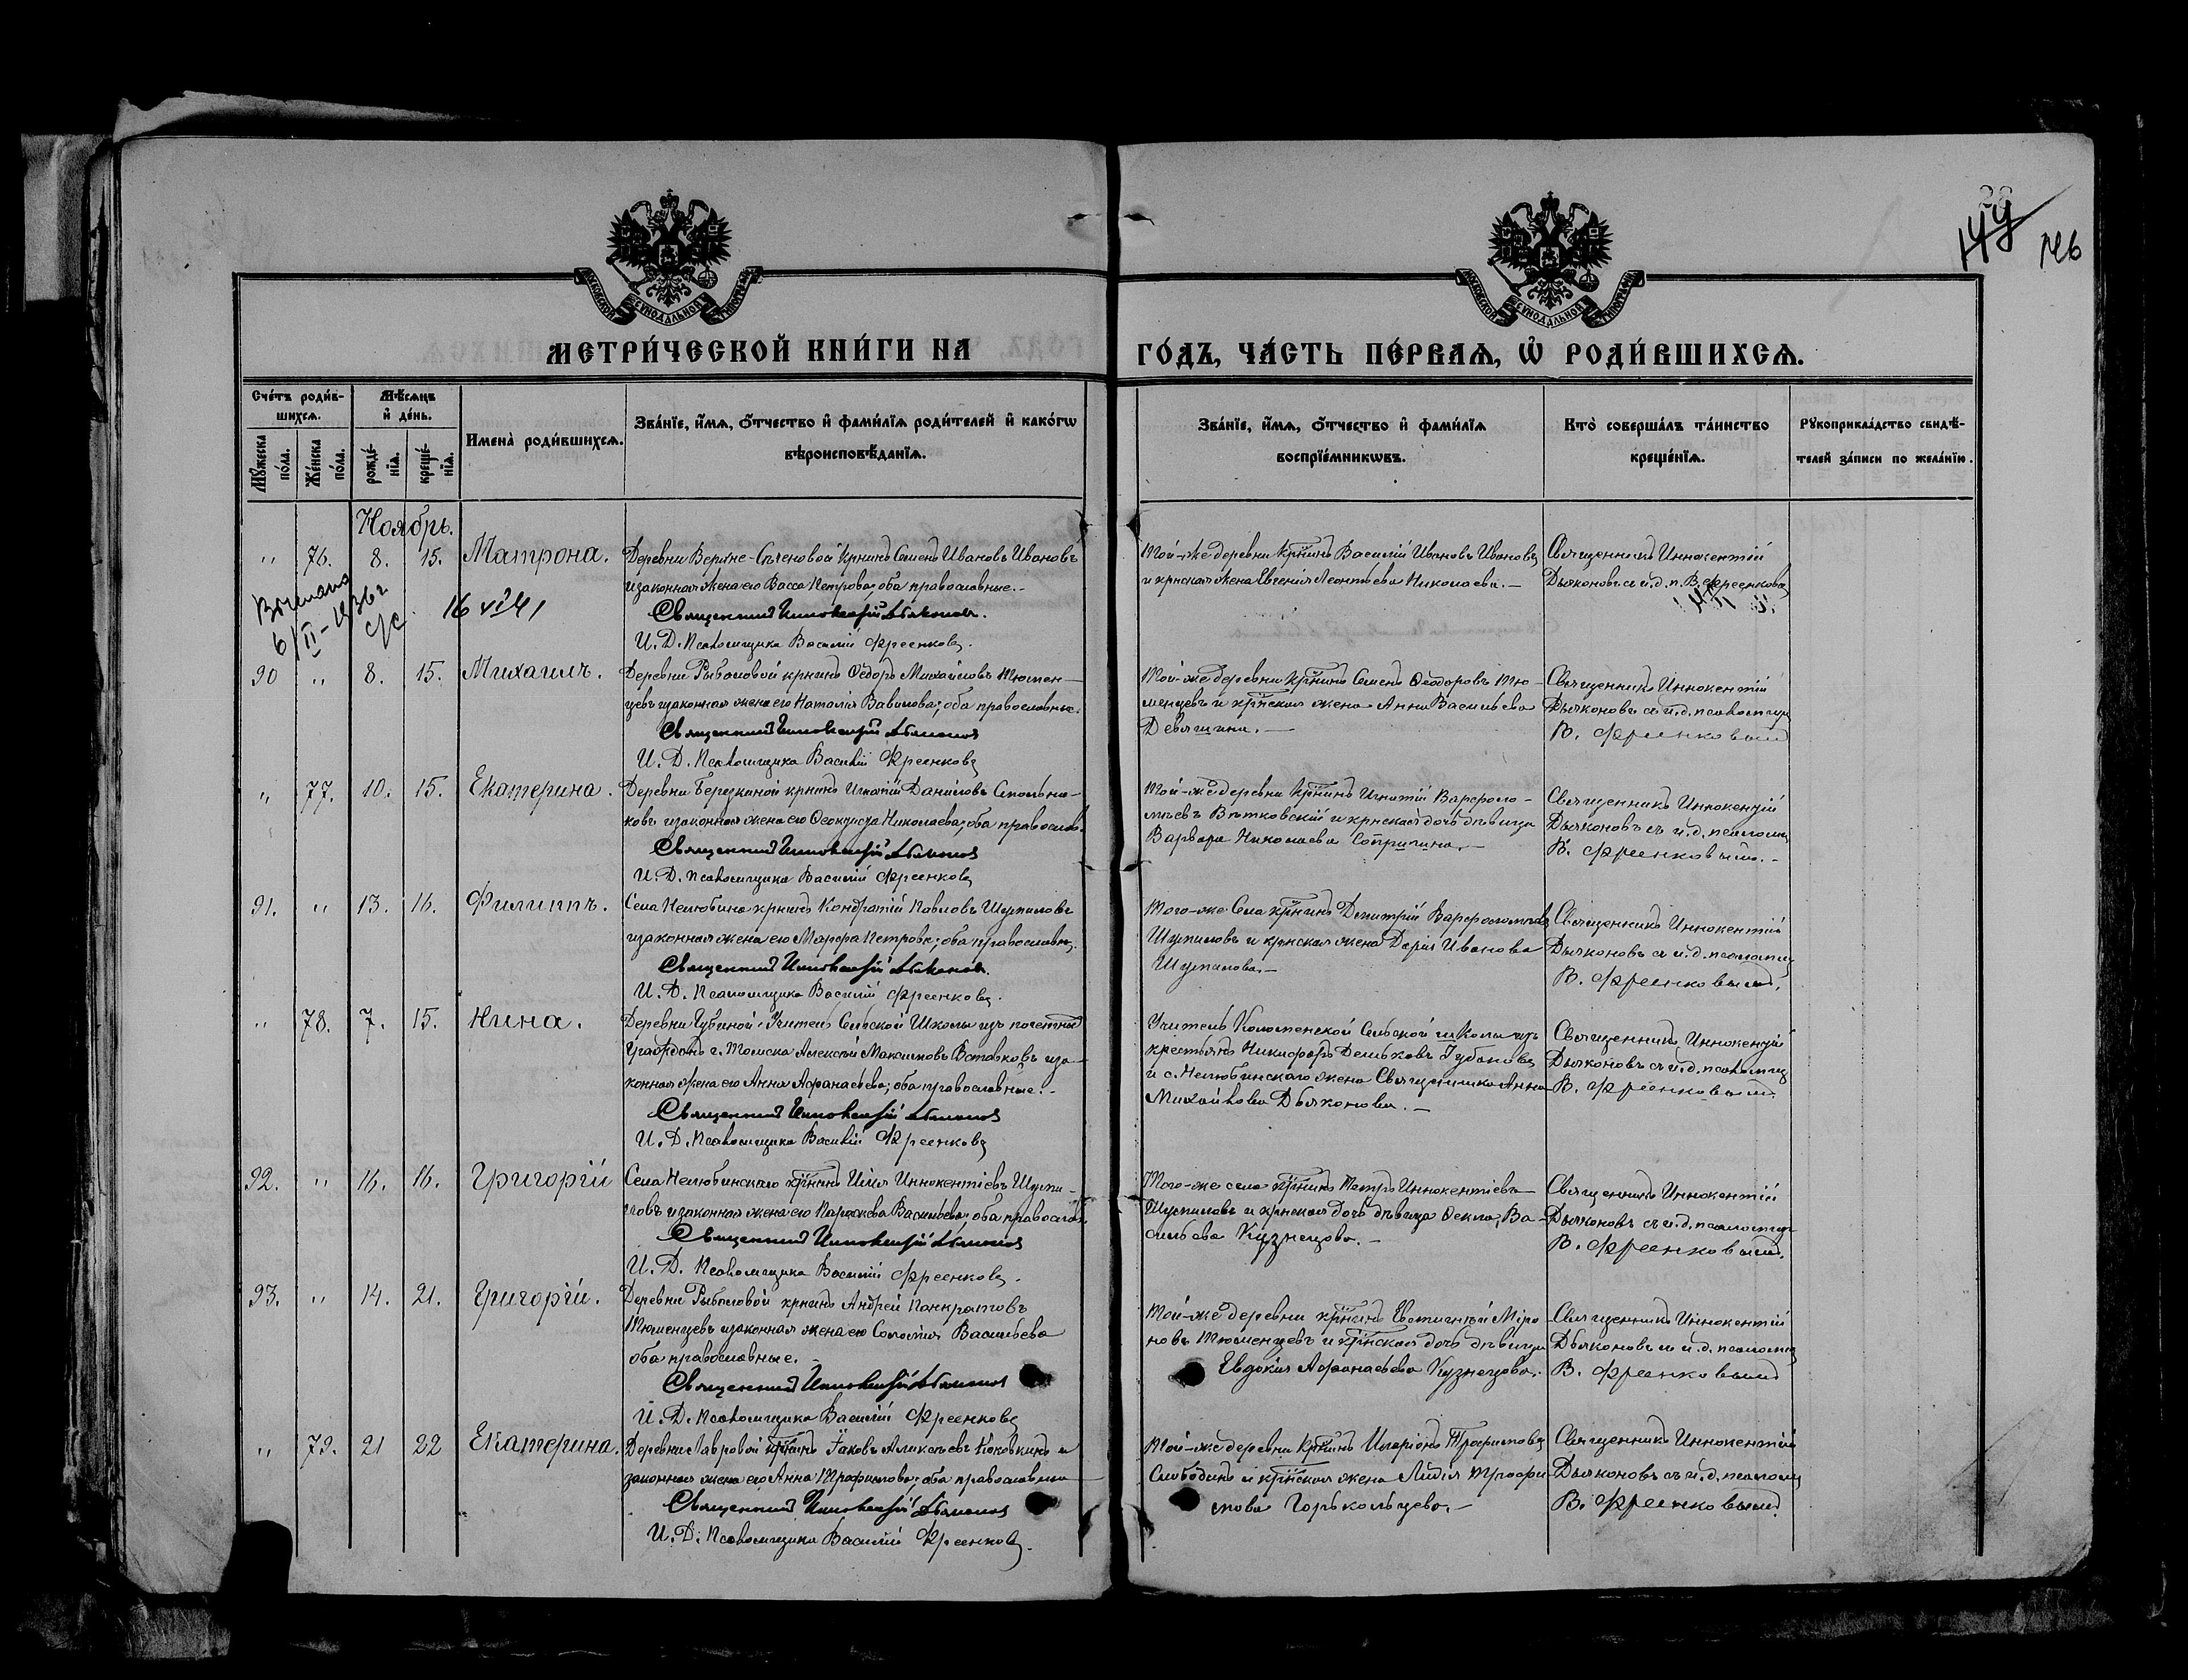 149 146
МОСКОВСКОЙ СѴНОДАЛЬНОЙ ТИПОГРАФІИ
МОСКОВСКОЙ СѴНОДАЛЬНОЙ ТИПОГРАФІИ
МЕТРИ́ЧЕСКОЙ КНИ́ГИ НА
ГО́ДЪ, ЧА́СТЬ ПЕ́РВАѦ, Ѡ҆ РОДИ́ВШИХСѦ.
Сче́тъ роди́в-
шихсѧ.
Мꙋ́жеска по́ла.
Же́нска по́ла.
Мѣ́сѧцъ
и҆ де́нь.
рожде́-нїѧ.
креще́-нїѧ.
И҆мена̀ роди́вшихсѧ.
Зва́нїе, и҆́мѧ, ѻ҆́тчество и҆ фами́лїѧ роди́телей и҆ како́гѡ
вѣроисповѣ́данїѧ.
Зва́нїе, и҆́мѧ, ѻ҆́тчество и҆ фами́лїѧ
воспрїе́мникѡвъ.
Кто̀ соверша́лъ та́инство
креще́нїѧ.
Рꙋкоприкла́дство свидѣ́-
телей за́писи по жела́нїю.
Ноябрь.
" 76. 8. 15. Матрона.
Деревни Верхне-Сеченовой крнинъ Семенъ Ивановъ Ивановъ
и законная жена его Васса Петрова; оба православные.-
Священникъ Иннокентій Дьяконов.
И. Д. Псаломщика Василій Френковъ.
Той-же деревни крнинъ Василій Ивановъ Ивановъ
и крнская жена Евгенія Леонтьева Николаева.-
Священникъ Иннокентій
Дьяконовъ съ и.д.п. В. Френковым
6/II-1936г
с/с
16 VI 41
90 " 8. 15. Михаилъ.
Деревни Рыбаловой крнинъ Ѳедоръ Михайловъ Тюмен-
цевъ и законная жена его Наталія Вавилова; оба православные.
Священникъ Иннокентій Дьяконов
И. Д. Псаломщика Василій Френковъ
Той-же деревни крнинъ Семенъ Ѳеодоровъ Тю-
менцевъ и крнская жена Анна Васильева
Девяшина.-
Священникъ Иннокентій
Дьяконовъ съ и.д. псаломщ
В. Френковымъ
" 77. 10. 15. Екатерина.
Деревни Березкиной крнинъ Игнатій Даниловъ Стольни-
ковъ и законная жена его Ѳеоктиста Николаева; оба православ.
Священникъ Иннокентій Дьяконов
И. Д. Псаломщика Василій Френковъ
Той-же деревни крнинъ Игнатій Варфоло-
меевъ Вятковскій и крнская дочь дѣвица
Варвара Николаева
Священникъ Иннокентій
Дьяконовъ съ и.д. псаломщ
В. Френковымъ.-
91. " 13. 16. Филиппъ.
Села Нелюбина крнинъ Кондратій Павловъ Шутиловъ
и законная жена его Марфа Петрова; оба православн.
Священникъ Иннокентій Дьяконов.
И. Д. Псаломщика Василій Френковъ.
Того-же Села крнинъ Димитрій Варфоломеевъ
Шутиловъ и крнская жена Дарія Иванова
Шутилова.-
Священникъ Иннокентій
Дьяконовъ съ и.д. псаломщ
В. Френковымъ.
" 78. 7. 15. Нина.
Деревни Губиной Учитель Сельской Школы изъ почетных
Граждан г. Томска Алексѣй Максимовъ Вставковъ и за-
конная жена его Анна Афанасьева; оба православные.-
Священникъ Иннокентій Дьяконов
И. Д. Псаломщика Василій Френковъ
Учитель Коломенской Сельской школы изъ
крестьянъ Никифоръ Губановъ
и с. Нелюбинскаго жена Священника Анна
Михайлова Дьяконова.-
Священникъ Иннокентій
Дьяконовъ съ и.д. псаломщ
В. Френковым.
92. " 16. 16. Григорій
Села Нелюбинскаго крнинъ Илія Иннокентіевъ Шути-
ловъ и законная жена его Параскева Васильева; оба православ.
Священникъ Иннокентій Дьяконов
И. Д. Псаломщика Василій Френковъ.
Того-же села крнинъ Петръ Иннокентіевъ
Шутиловъ и крнская дочь дѣвица Ѳекла Ва-
сильева Кузнецова.-
Священникъ Иннокентій
Дьяконовъ съ и.д. псаломщ
В. Френковымъ.
93. " 14. 21. Григорій.
Деревни Рыбаловой крнинъ Андрей Панкратовъ
Тюменцевъ и законная жена его Соломія Васильева
оба православные.-
Священникъ Иннокентій Дьяконов
И. Д. Псаломщика Василій Френковъ
Той-же деревни крнинъ Евстигнѣй Миро-
новъ Тюменцевъ и крнская дочь дѣвица
Евдокія Афанасьева Кузнецова.
Священникъ Иннокентій
Дьяконовъ съ и.д. псаломщ
В. Френковымъ
" 79. 21 22 Екатерина.
Деревни Лавровой крнинъ Іаковъ Алексѣевъ Коковкинъ и
законная жена его Анна Трофимова; оба православные
Священникъ Иннокентій Дьяконов
И. Д. Псаломщика Василій Френковъ.
Той-же деревни крнинъ Иларіонъ Трофимовъ
Слободинъ и крнская жена Лидія Трофи-
мова Горькольцева.-
Священникъ Иннокентій
Дьяконовъ съ и.д. псаломщ
В. Френковымъ.